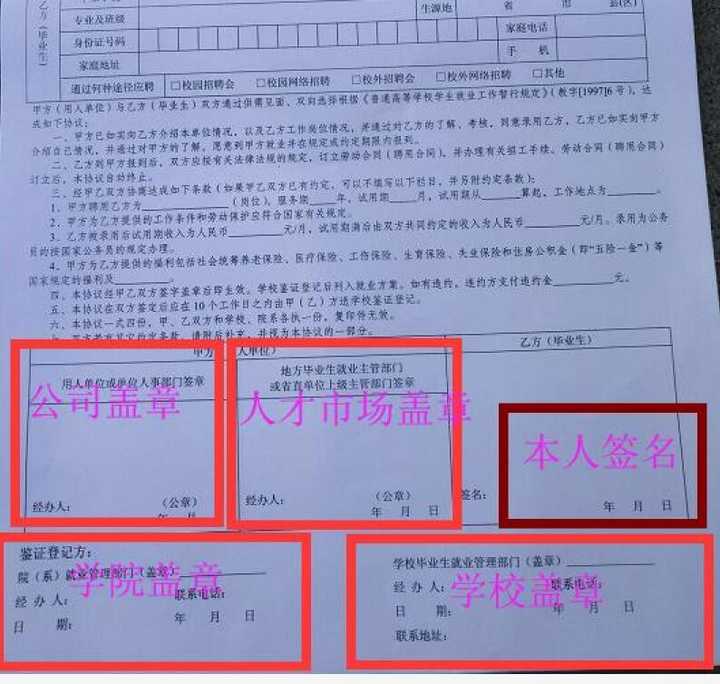 专业及班级
生源地
省 市 县(区)
乙方（毕业生）
身份证号码
家庭电话
家庭地址
手 机
通过何种途径应聘 □校园招聘会 □校园网络招聘 □校外招聘会 □校外网络招聘 □其他
甲方（用人单位）与乙方（毕业生）双方通过供需见面、双向选择根据《普通高等学校学生就业工作暂行规定》（教学[1997]6号），达
成如下协议：
一、甲方已如实向乙方介绍本单位情况，以及乙方工作岗位情况，并通过对乙方的了解、考核，同意录用乙方，乙方已如实向甲方
介绍自己情况，并通过对甲方的了解，愿意到甲方就业并在规定或约定期限内报到。
二、乙方到甲方报到后，双方应按有关法律法规的规定，订立劳动合同（聘用合同），并办理有关招工手续。劳动合同（聘用合同）
订立后，本协议自动终止。
三、经甲乙双方协商达成如下条款（如果甲乙双方已有约定，可以不填写以下栏目，并另附约定条款）：
1、甲方聘用乙方为（岗位），服务期 年，试用期 月，试用期从 算起，工作地点为 。
2、甲方为乙方提供的工作条件和劳动保护应符合国家有关规定。
3、乙方被录用后试用期收入为人民币 元/月，试用期满后由双方共同约定的收入为人民币 元/月。录用为公务
员的按国家公务员的规定办理。
4、甲方为乙方提供的福利包括社会统筹养老保险、医疗保险、工伤保险、生育保险、失业保险和住房公积金（即“五险一金”）等
国家规定的福利及 。
四、本协议经甲乙双方签字盖章后即生效。学校鉴证登记后列入就业方案。如有违约，违约方支付违约金 元。
五、本协议在双方签定后应在10个工作日之内由甲（乙）方送学校鉴证登记。
六、本协议一式四份，甲、乙双方和学校、院系各执一份，复印件无效。
请附后补充，并视为本协议的一部分。
甲方 人单位）
乙方（毕业生）
用人单位或单位人事部门签章
地方毕业生就业主管部门
或省直单位上级主管部门签章
公司盖章
人才市场盖章
本人签名
经办人：
（公章）
年 月
经办人：
（公章）
年 月 日
签名：
年 月 日
鉴证登记方：
院（系）就业管理部门（盖章）
学院盖章
经 办 人：
联系电话：
日 期：
年 月 日
学校毕业生就业管理部门（盖章）
学校盖章
经 办 人：
联系电话：
日 期：
年 月 日
联系地址：